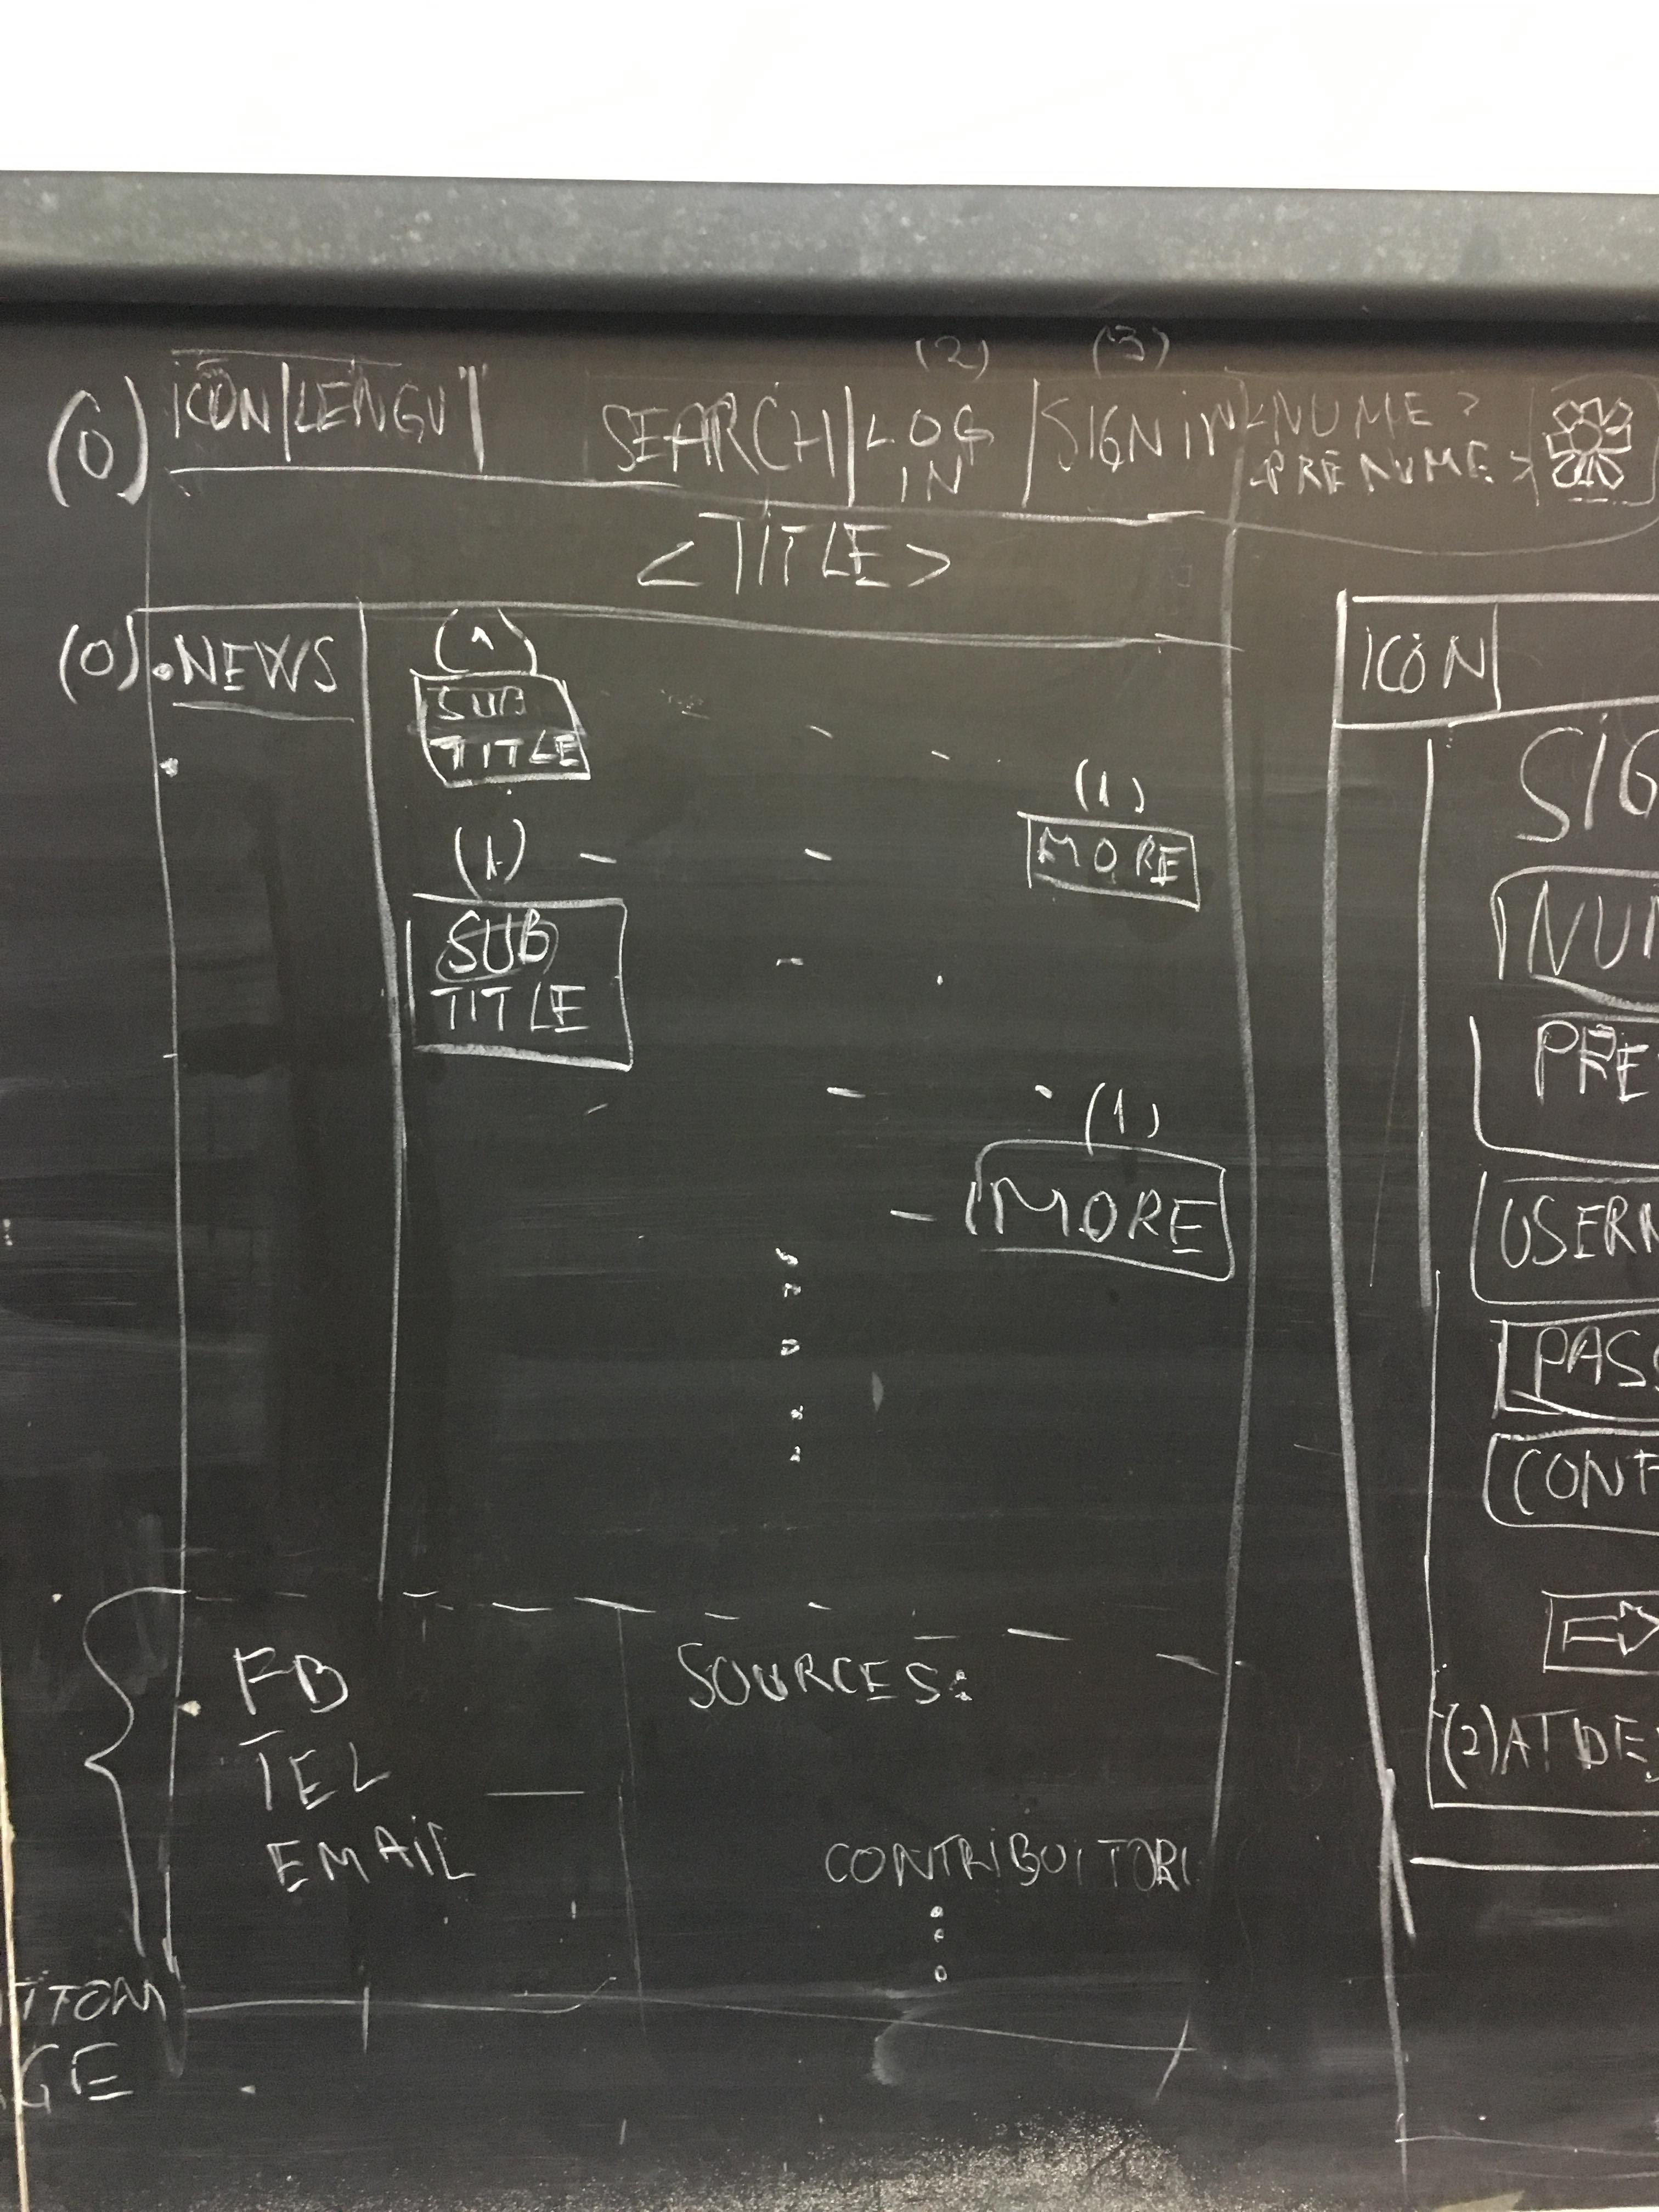 (2) (3)
(0) ICON | LENGU | SEARCH | LOG IN | SIGN IN <NUME>
<PRENUME>
<TITLE>
(0) . NEWS
(1)
SUB
TITLE
(1)
MORE
(1)
SUB
TITLE
(1)
MORE
FB
TEL
EMAIL
SOURCES:
CONTRIBUITORI
TTOM
GE
ICON
SIG
NUM
PRE
USERN
PASS
CONF
(2) AT DE